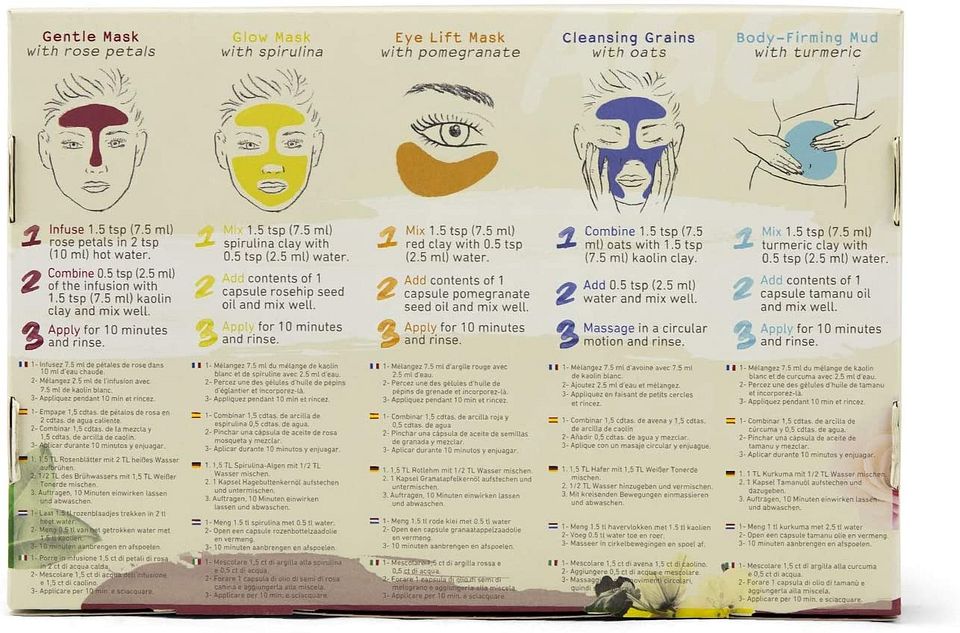 Gentle Mask
with rose petals
1 Infuse 1.5 tsp (7.5 ml)
rose petals in 2 tsp
(10 ml) hot water.
2 Combine 0.5 tsp (2.5 ml)
of the infusion with
1.5 tsp (7.5 ml) kaolin
clay and mix well.
3 Apply for 10 minutes
and rinse.
1- Infusez 7.5 ml de pétales de rose dans
10 ml d'eau chaude.
2- Mélangez 2.5 ml de l'infusion avec
7.5 ml de kaolin blanc.
3- Appliquez pendant 10 min et rincez.
1- Empape 1,5 cdtas. de pétalos de rosa en
2 cdtas. de agua caliente.
2- Combinar 1,5 cdtas. de la mezcla y
1,5 cdtas. de arcilla de caolín.
3- Aplicar durante 10 minutos y enjuagar.
1. 1,5 TL Rosenblätter mit 2 TL heißes Wasser
aufbrühen.
2. 1/2 TL des Brühwassers mit 1,5 TL Weißer
Tonerde mischen.
3. Auftragen, 10 Minuten einwirken lassen
und abwaschen.
1- Last 1.5 tl rozenblaadjes trekken in 2 tl
heet water.
2- Meng 0.5 tl van het getrokken water met
1.5 tl kaolien.
3- 10 minuten aanbrengen en afspoelen.
1- Porre in infusione 1,5 ct di petali di rosa
in 2 ct di acqua calda.
2- Mescolare 1,5 ct di acqua dell infusione
e 1,5 ct di caolino.
3- Applicare per 10 min. e sciacquare.
Glow Mask
with spirulina
1 Mix 1.5 tsp (7.5 ml)
spirulina clay with
0.5 tsp (2.5 ml) water.
2 Add contents of 1
capsule rosehip seed
oil and mix well.
3 Apply for 10 minutes
and rinse.
1- Mélangez 7.5 ml du mélange de kaolin
blanc et de spiruline avec 2.5 ml d'eau.
2- Percez une des gélules d'huile de pépins
d'églantier et incorporez-là.
3- Appliquez pendant 10 min et rincez.
1- Combinar 1,5 cdtas. de arcilla de
espirulina 0,5 cdtas. de agua.
2- Pinchar una cápsula de aceite de rosa
mosqueta y mezclar.
3- Aplicar durante 10 minutos y enjuagar.
1. 1,5 TL Spirulina-Algen mit 1/2 TL
Wasser mischen.
2. 1 Kapsel Hagebuttenkernöl aufstechen
und untermischen.
3. Auftragen, 10 Minuten einwirken lassen
und abwaschen.
1- Meng 1.5 tl spirulina met 0.5 tl water.
2- Open een capsule rozenbottelzaadolie
en vermeng.
3- 10 minuten aanbrengen en afspoelen.
1- Mescolare 1,5 ct di argilla alla spirulina
e 0,5 ct di acqua.
2- Forare 1 capsula di olio di semi di rosa
canina e aggiungerla alla miscela.
3- Applicare per 10 min. e sciacquare.
Eye Lift Mask
with pomegranate
1 Mix 1.5 tsp (7.5 ml)
red clay with 0.5 tsp
(2.5 ml) water.
2 Add contents of 1
capsule pomegranate
seed oil and mix well.
3 Apply for 10 minutes
and rinse.
1- Mélangez 7.5 ml d'argile rouge avec
2.5 ml d'eau.
2- Percez une des gélules d'huile de
pépins de grenade et incorporez-là.
3- Appliquez pendant 10 min et rincez.
1- Combinar 1,5 cdtas. de arcilla roja y
0,5 cdtas. de agua.
2- Pinchar una cápsula de aceite de semillas
de granada y mezclar.
3- Aplicar durante 10 minutos y enjuagar.
1. 1,5 TL Rotlehm mit 1/2 TL Wasser mischen.
2. 1 Kapsel Granatapfelkernöl aufstechen und
untermischen.
3. Auftragen, 10 Minuten einwirken lassen
und abwaschen.
1- Meng 1.5 tl rode klei met 0.5 tl water
2- Open een capsule granaatappelzaadolie
en vermeng.
3- 10 minuten aanbrengen en afspoelen.
1- Mescolare 1,5 ct di argilla rossa e
0,5 ct di acqua.
2- Forare 1 capsula di olio di semi di
melograno e aggiungerla alla miscela.
3- Applicare per 10 min. e sciacquare.
Cleansing Grains
with oats
1 Combine 1.5 tsp (7.5
ml) oats with 1.5 tsp
(7.5 ml) kaolin clay.
2 Add 0.5 tsp (2.5 ml)
water and mix well.
3 Massage in a circular
motion and rinse.
1- Mélangez 7.5 ml d'avoine avec 7.5 ml
de kaolin blanc.
2- Ajoutez 2.5 ml d'eau et mélangez.
3- Appliquez en faisant de petits cercles
et rincez.
1- Combinar 1,5 cdtas. de avena y 1,5 cdtas.
de arcilla de caolín
2- Añadir 0,5 cdtas. de agua y mezclar.
3- Aplique con un masaje circular y enjuague.
1. 1,5 TL Hafer mit 1,5 TL Weißer Tonerde
mischen.
2. 1/2 TL Wasser hinzugeben und vermischen.
3. Mit kreisenden Bewegungen einmassieren
und abwaschen.
1- Meng 1.5 tl havervlokken met 1.5 tl kaolien
2- Voeg 0.5 tl water toe en roer.
3- Masseer in cirkelbewegingen en spoel af.
1- Mescolare 1,5 ct di avena 1,5 ct di caolino.
2- Aggiungere 0,5 ct di acqua e mescolare.
3- Massagg movimenti circolari,
quindi
Body-Firming Mud
with turmeric
1 Mix 1.5 tsp (7.5 ml)
turmeric clay with
0.5 tsp (2.5 ml) water.
2 Add contents of 1
capsule tamanu oil
and mix well.
3 Apply for 10 minutes
and rinse.
1- Mélangez 7.5 ml du mélange de kaolin
blanc et de curcuma avec 2.5 ml d'eau.
2- Percez une des gélules d'huile de tamanu
et incorporez-là.
3- Appliquez pendant 10 min et rincez.
1- Combinar 1,5 cdtas. de arcilla de
cúrcuma y 0,5 cdtas. de agua.
2- Pinchar una cápsula de aceite de
tamanu y mezclar.
3- Aplicar durante 10 minutos y enjuagar.
1. 1 TL Kurkuma mit 1/2 TL Wasser mischen.
2. 1 Kapsel Tamanuöl aufstechen und
dazugeben.
3. Auftragen, 10 Minuten einwirken lassen
und abwaschen.
1- Meng 1 tl kurkuma met 2.5 tl water
2- Open een capsule tamanu olie en vermeng.
3- 10 minuten aanbrengen en afspoelen.
1- Mescolare 1,5 ct di argilla alla curcuma
e 0,5 ct di acqua.
2- Forare 1 capsula di olio di tamanù e
aggiungerla alla miscela.
3- Applicare per 10 min. e sciacquare.